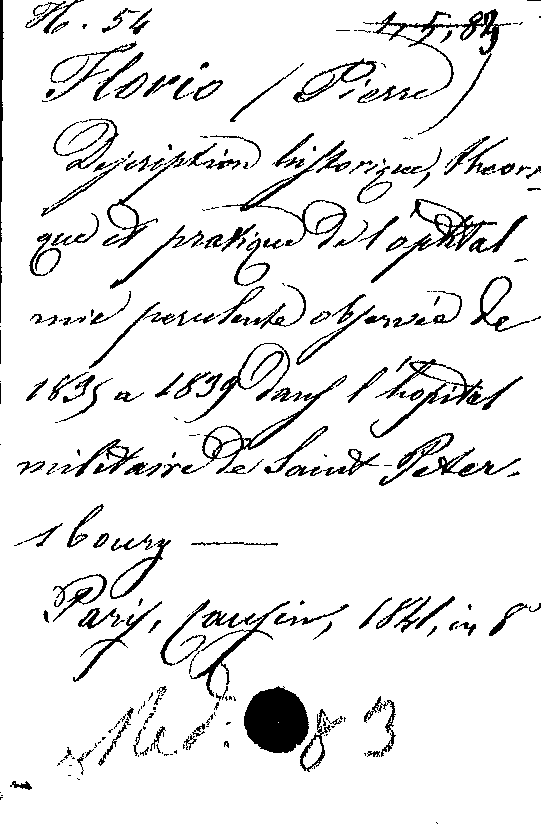 H. 54 4, 5, 83
Florio (Pierre)
Description historique, théori-
que et pratique de l'ophtal-
mie purulente observée de
1835 a 1839 dans l'hopital
militaire de Saint-Péter-
sbourg —
Paris, Cousin, 1841, in 8°
Méd: 83